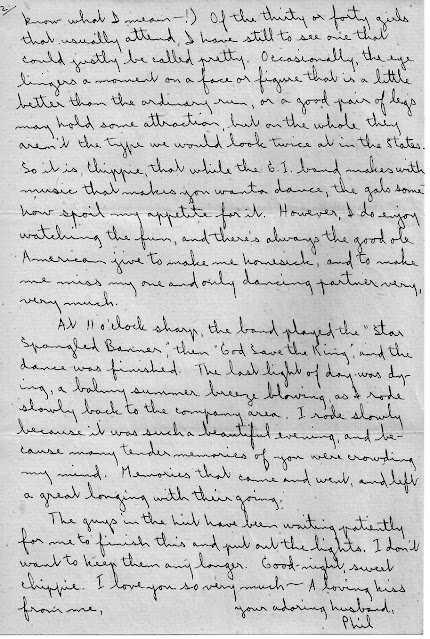 2/
know what I mean—!) Of the thirty or forty girls
that usually attend, I have still to see one that
could justly be called pretty. Occasionally, the eye
lingers a moment on a face or figure that is a little
better than the ordinary run, or a good pair of legs
may hold some attraction, but on the whole they
aren't the type we would look twice at in the States.
So it is, Chippie, that while the G.I. band makes with
music that makes you wanta dance, the gals some
how spoil my appetite for it. However, I do enjoy
watching the fun, and there's always the good ole
American jive to make me homesick, and to make
me miss my one and only dancing partner very,
very much.
At 11 o'clock sharp, the band played the "Star
Spangled Banner," then "God Save the King", and the
dance was finished. The last light of day was dy-
ing, a balmy summer breeze blowing, as I rode
slowly back to the company area. I rode slowly
because it was such a beautiful evening, and be-
cause many tender memories of you were crowding
my mind. Memories that came and went, and left
a great longing with their going.
The guys in the hut have been waiting patiently
for me to finish this and put out the lights. I don't
want to keep them any longer. Good-night, sweet
chippie. I love you so very much— A loving kiss
from me, your adoring husband,
Phil